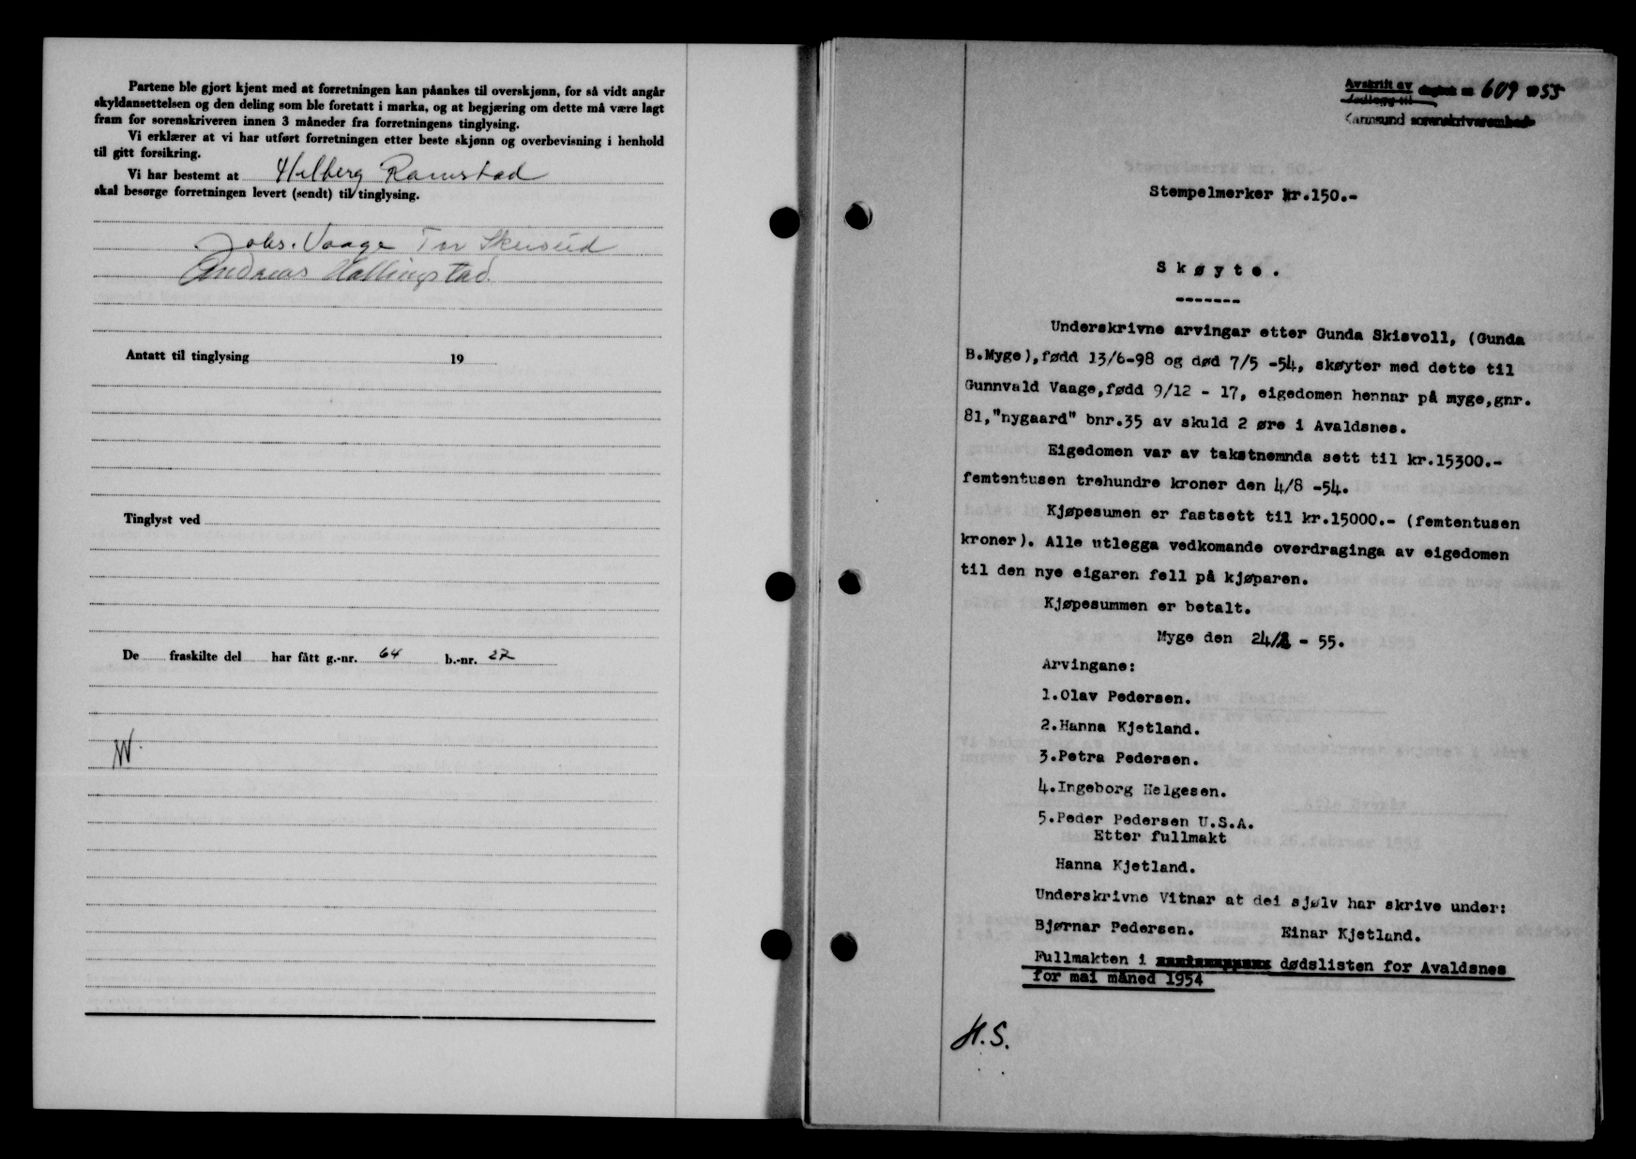 Partene ble gjort kjent med at forretningen kan påankes til overskjønn, for så vidt angår
skyldansettelsen og den deling som ble foretatt i marka, og at begjæring om dette må være lagt
fram for sorenskriveren innen 3 måneder fra forretningens tinglysing.
Vi erklærer at vi har utført forretningen etter beste skjønn og overbevisning i henhold
til gitt forsikring.
Vi har bestemt at Hilberg Ramstad
skal besørge forretningen levert (sendt) til tinglysing.
Johs. Vaage Tor
Andreas Hallingstad
Antatt til tinglysing 19
Tinglyst ved
De fraskilte del har fått g.-nr. 64 b.-nr. 27
Avskrift av dagbok nr 609 1955
Karmsund sorenskriverembede
Stempelmerker kr.150.-
Skøyte.
-------
Underskrivne arvingar etter Gunda Skisvoll, (Gunda
B.Myge),fødd 13/6-98 og død 7/5 -54, skøyter med dette til
Gunnvald Vaage,fødd 9/12 - 17, eigedomen hennar på myge,gnr.
81,"nygaard" bnr.35 av skuld 2 øre i Avaldsnes.
Eigedomen var av takstnemnda sett til kr.15300.-
femtentusen trehundre kroner den 4/8 -54.
Kjøpesumen er fastsett til kr.15000.- (femtentusen
kroner). Alle utlegga vedkomande overdraginga av eigedomen
til den nye eigaren fell på kjøparen.
Kjøpesummen er betalt.
Myge den 24/2 - 55.
Arvingane:
1.Olav Pedersen.
2.Hanna Kjetland.
3.Petra Pedersen.
4.Ingeborg Helgesen.
5.Peder Pedersen U.S.A.
Etter fullmakt
Hanna Kjetland.
Underskrivne Vitnar at dei sjølv har skrive under:
Bjørnar Pedersen. Einar Kjetland.
Fullmakten i dødslisten for Avaldsnes
for mai måned 1954
H.S.